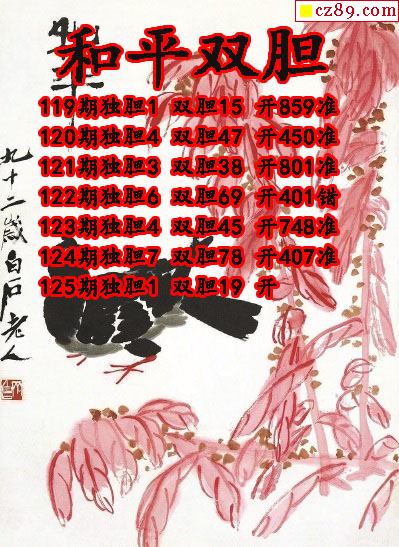 cz89.com
和平双胆
119期独胆1 双胆15 开859准
120期独胆4 双胆47 开450准
121期独胆3 双胆38 开801准
122期独胆6 双胆69 开401错
123期独胆4 双胆45 开748准
124期独胆7 双胆78 开407准
125期独胆1 双胆19 开
九十二岁白石老人